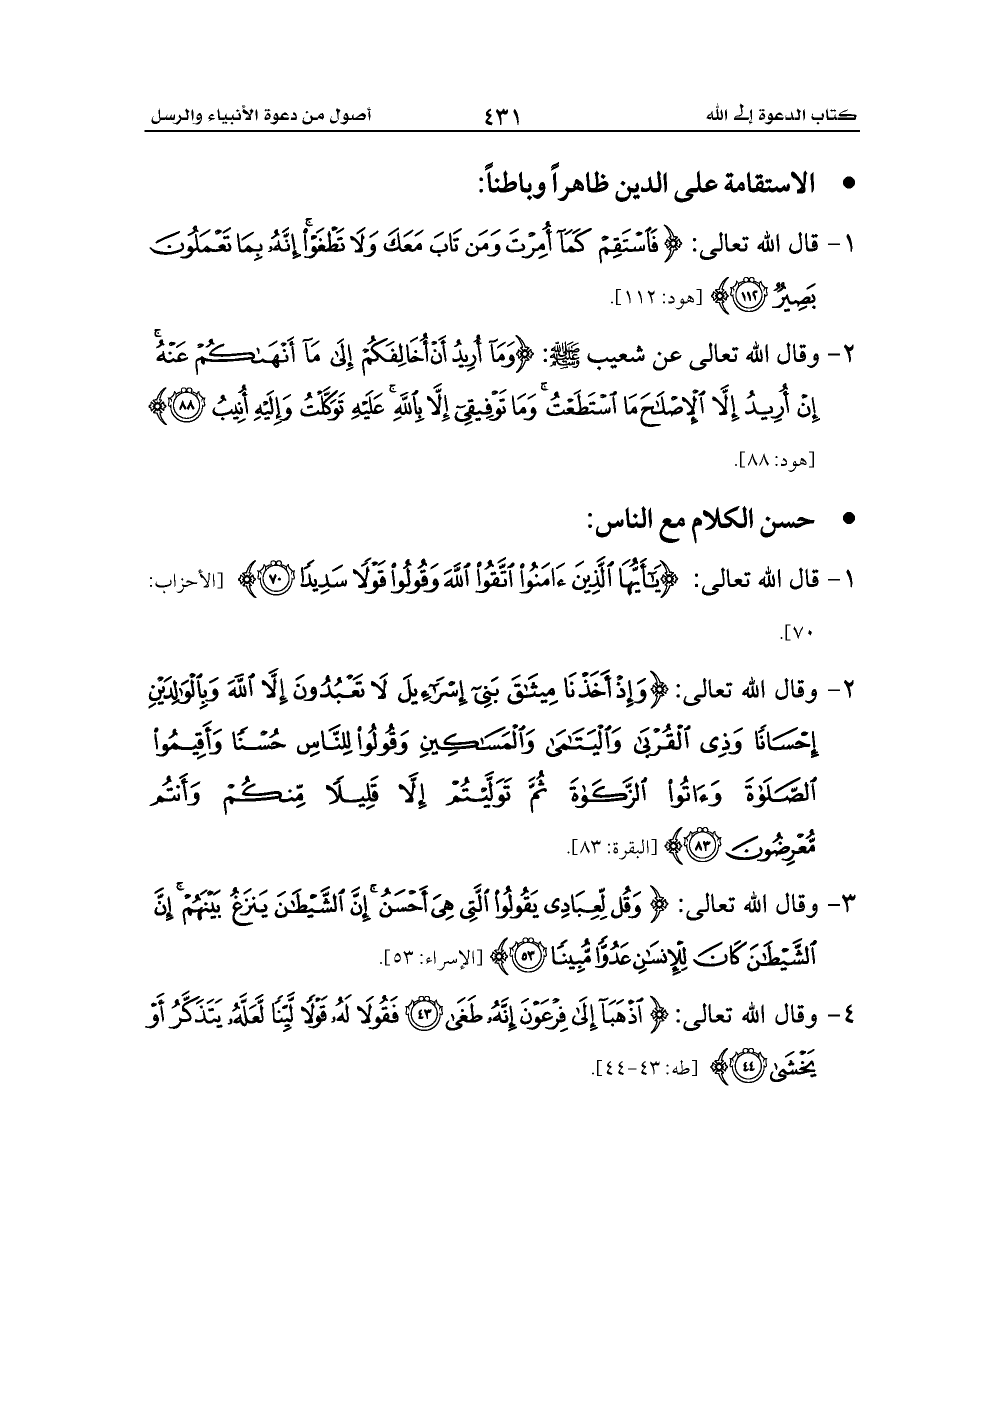 كتاب الدعوة إلى الله ٤٣١ أصول من دعوة الأنبياء والرسل
• الاستقامة على الدين ظاهراً وباطناً:
١- قال الله تعالى: ﴿فَٱسْتَقِمْ كَمَآ أُمِرْتَ وَمَن تَابَ مَعَكَ وَلَا تَطْغَوْا۟ۚ إِنَّهُۥ بِمَا تَعْمَلُونَ
بَصِيرٌ ١١٢﴾ [هود: ١١٢].
٢- وقال الله تعالى عن شعيب ﷺ: ﴿وَمَآ أُرِيدُ أَنْ أُخَالِفَكُمْ إِلَىٰ مَآ أَنْهَىٰكُمْ عَنْهُۚ
إِنْ أُرِيدُ إِلَّا ٱلْإِصْلَٰحَ مَا ٱسْتَطَعْتُۚ وَمَا تَوْفِيقِىٓ إِلَّا بِٱللَّهِۚ عَلَيْهِ تَوَكَّلْتُ وَإِلَيْهِ أُنِيبُ ٨٨﴾
[هود: ٨٨].
• حسن الكلام مع الناس:
١- قال الله تعالى: ﴿يَٰٓأَيُّهَا ٱلَّذِينَ ءَامَنُوا۟ ٱتَّقُوا۟ ٱللَّهَ وَقُولُوا۟ قَوْلًا سَدِيدًا ٧٠﴾ [الأحزاب:
٧٠].
٢- وقال الله تعالى: ﴿وَإِذْ أَخَذْنَا مِيثَٰقَ بَنِىٓ إِسْرَٰٓءِيلَ لَا تَعْبُدُونَ إِلَّا ٱللَّهَ وَبِٱلْوَٰلِدَيْنِ
إِحْسَانًا وَذِى ٱلْقُرْبَىٰ وَٱلْيَتَٰمَىٰ وَٱلْمَسَٰكِينِ وَقُولُوا۟ لِلنَّاسِ حُسْنًا وَأَقِيمُوا۟
ٱلصَّلَوٰةَ وَءَاتُوا۟ ٱلزَّكَوٰةَ ثُمَّ تَوَلَّيْتُمْ إِلَّا قَلِيلًا مِّنكُمْ وَأَنتُم
مُّعْرِضُونَ ٨٣﴾ [البقرة: ٨٣].
٣- وقال الله تعالى: ﴿وَقُل لِّعِبَادِى يَقُولُوا۟ ٱلَّتِى هِىَ أَحْسَنُۚ إِنَّ ٱلشَّيْطَٰنَ يَنزَغُ بَيْنَهُمْۚ إِنَّ
ٱلشَّيْطَٰنَ كَانَ لِلْإِنسَٰنِ عَدُوًّا مُّبِينًا ٥٣﴾ [الإسراء: ٥٣].
٤- وقال الله تعالى: ﴿ٱذْهَبَآ إِلَىٰ فِرْعَوْنَ إِنَّهُۥ طَغَىٰ ٤٣ فَقُولَا لَهُۥ قَوْلًا لَّيِّنًا لَّعَلَّهُۥ يَتَذَكَّرُ أَوْ
يَخْشَىٰ ٤٤﴾ [طه: ٤٣-٤٤].